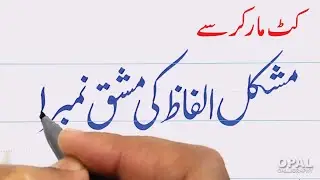 کٹ مارکر سے
مشکل الفاظ کی مشق نمبر ۱
OPAL
CALLIGRAPHY